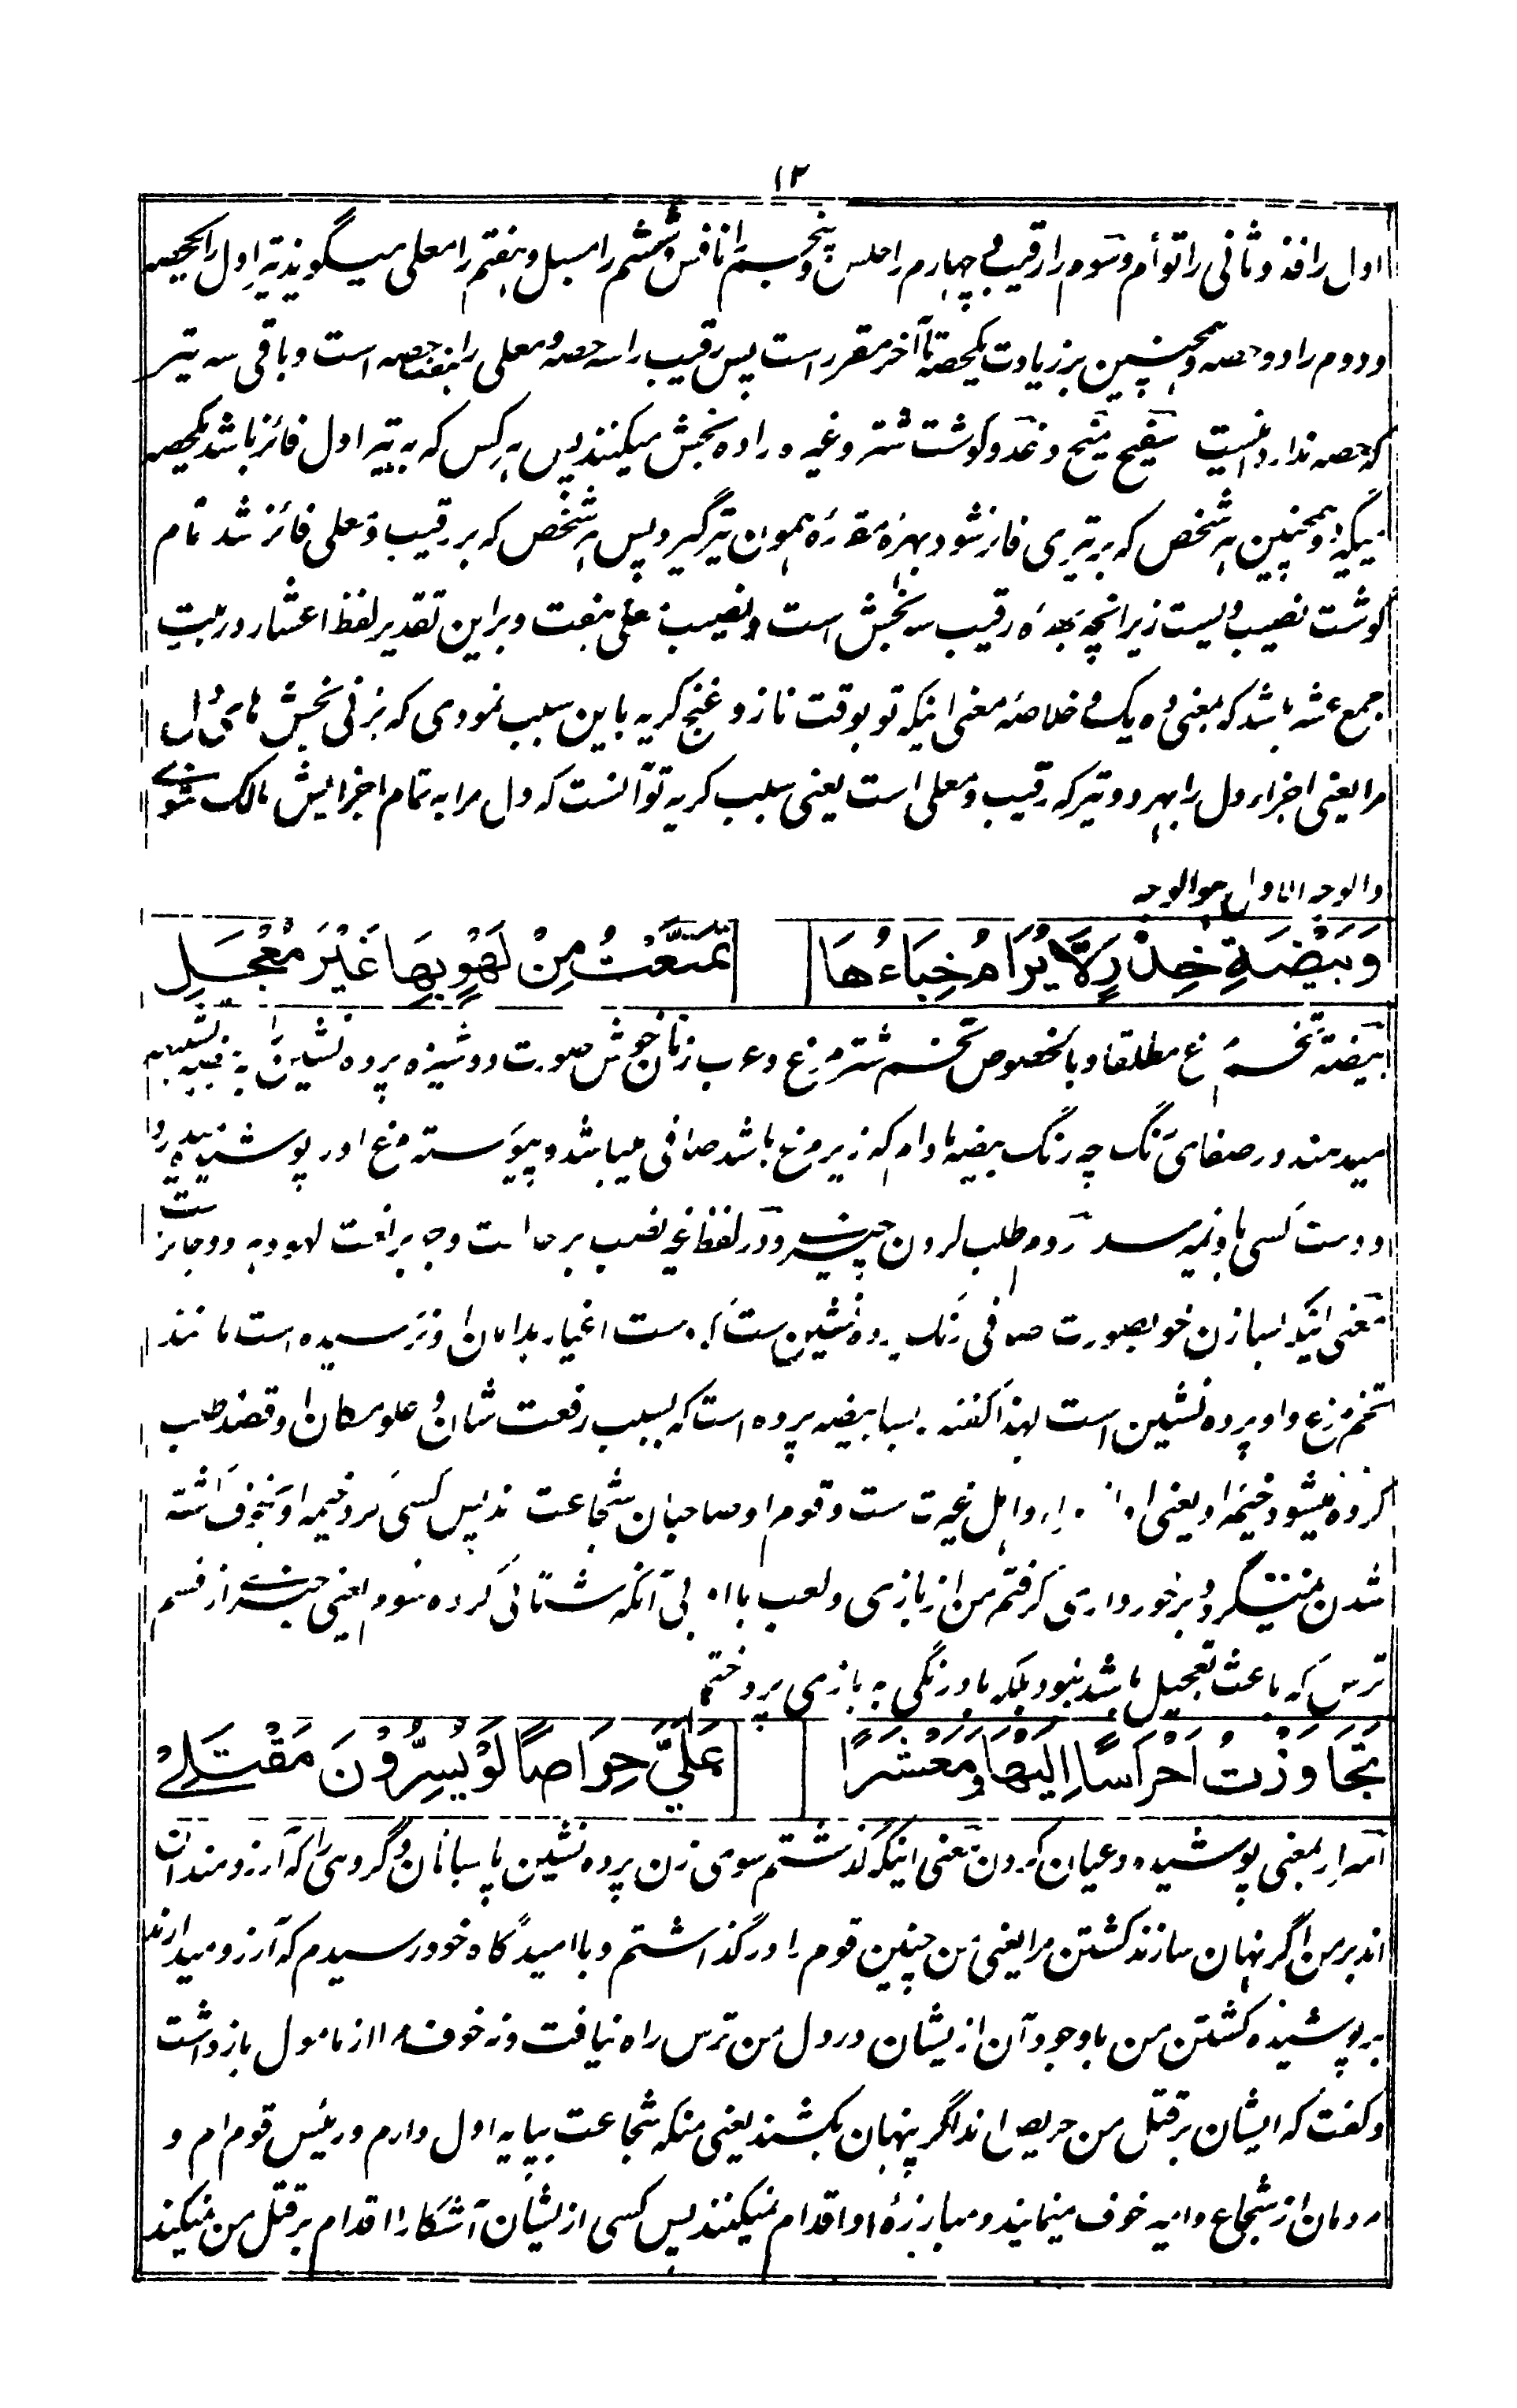 ۱۲
اول را فذ و ثانی را توأم و سوم را رقیب و چهارم را حلس و پنجم را نافس و ششم را مسبل و هفتم را معلی میگویند تیر اول را یکحصه
و دوم را دو حصه و همچنین بر زیادت یکحصه تا آخر مقرر است پس رقیب را سه حصه و معلی را هفت حصه است و باقی سه تیر
که حصه ندارد اینست سفیح منیح وغد و گوشت شتر وغیره را ده بخش میکنند پس هر کس که به تیر اول فائز باشد یکحصه
میگیرد و همچنین هر شخص که بر تیری فائز شود بهره مقرره همون تیر گیرد پس هر شخص که بر رقیب و معلی فائز شد تمام
گوشت نصیب ویست زیرانچه بهره رقیب سه بخش است و نصیب معلی هفت و براین تقدیر لفظ اعشار در بیت
جمع عشر باشد که بمعنی ده یک و خلاصه معنی اینکه تو بوقت ناز و غنج گریه باین سبب نمودی که بزنی بخش های دل
مرا یعنی اجزاء دل را بهر دو تیر که رقیب و معلی است یعنی سبب گریه تو آنست که دل مرا به تمام اجزایش مالک شوے
والوجه الاول هو الوجه
وَبَيْضَةِ خِدْرٍ لَا يُرَامُ خِبَاءُهَا تَمَتَّعْتُ مِنْ لَهْوٍ بِهَا غَيْرَ مُعْجَلِ
بیضة تخم مرغ مطلقا و بالخصوص تخم شتر مرغ و عرب زنان خوش صورت و دوشیزه پرده نشین را به بیضه تشبیه
میدهند در صفای رنگ چه رنگ بیضه مادام که زیر مرغ باشد صافی میباشد و پیوسته مرغ او را پوشیده دارد
و دست کسی باو نمیرسد روم طلب کردن چیزے و در لفظ غیر نصب بر حال است و جر بر نعت لهو و هر دو جائز ست
معنی اینکه بسا زن خوبصورت صافی رنگ پرده نشین ست که دست اغیار بدامان او نرسیده است مانند
تخم مرغ و او پرده نشین است لهذا گفته بسا بیضه پرده است که بسبب رفعت شان و علو مکان او قصد طلب
کرده نمیشود خیمه او یعنی او و اهل غیرت ست و قوم او صاحبان شجاعت اند پس کسی نزد خیمه او بیخوف گشته
شدن نمیتواند گرد و برخورداری گرفتم من از بازی و لعب با او بی آنکه شتابی کرده شوم یعنی چیزے از قسم
ترس که باعث تعجیل باشد نبود بلکه با درنگی به بازی پرداختم
تَجَاوَزْتُ اَحْرَاسًا اِلَيْهَا وَمَعْشَرًا عَلَيَّ حِرَاصًا لَوْ يُسِرُّوْنَ مَقْتَلِيْ
اسرار بمعنی پوشیده و عیان کردن معنی اینکه گذشتم سوی زن پرده نشین پاسبانان و گروهی را که آرزومندان
اند بر من اگر نهان سازند کشتن مرا یعنی من چنین قوم را در گذاشتم و با امید گاه خود رسیدم که آرزو میدارند
بر پوشیده کشتن من باوجود آن از یشان در دل من ترس راه نیافت و نه خوف مرا از مامول بازداشت
و گفت که ایشان بر قتل من حریص اند اگر پنهان بکشند یعنی منکه شجاعت بپایه اول دارم و رئیس قوم ام و
مردمان از شجاع وامیر خوف مینمایند و مبارزهٔ او اقدام نمیکنند پس کسی از یشان آشکارا اقدام بر قتل من نمیکند